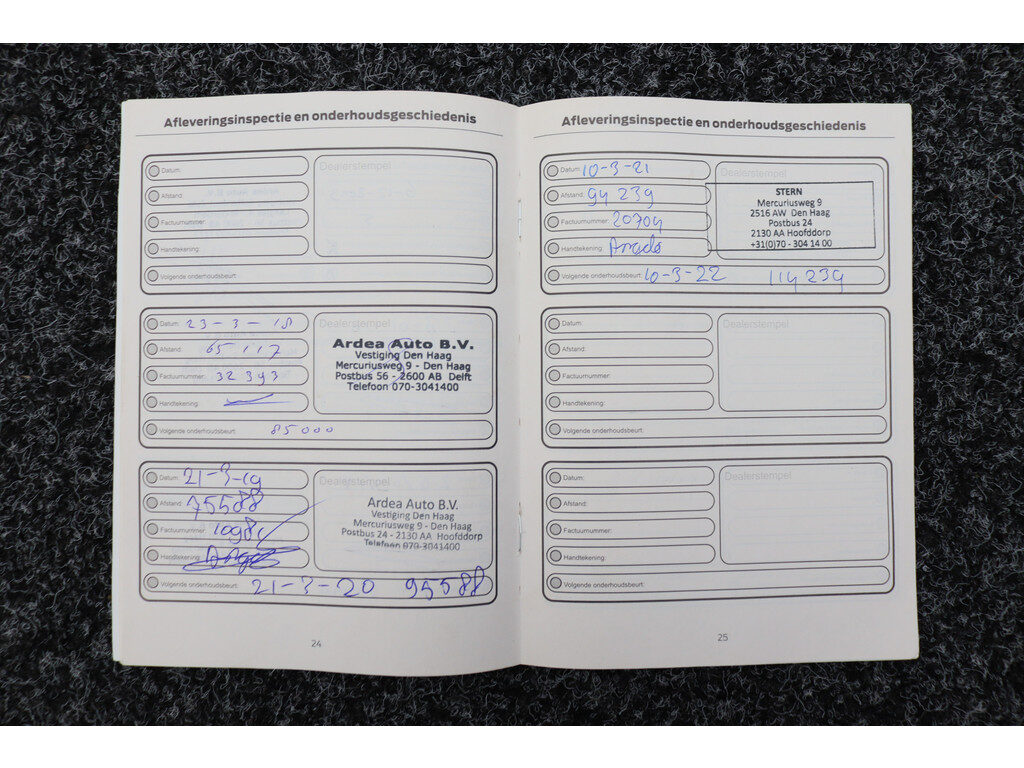 Afleveringsinspectie en onderhoudsgeschiedenis
Datum:
Afstand:
Factuurnummer:
Handtekening:
Volgende onderhoudsbeurt:
Dealerstempel
Datum: 23-3-18
Afstand: 65117
Factuurnummer: 32393
Handtekening:
Volgende onderhoudsbeurt: 85000
Dealerstempel
Ardea Auto B.V.
Vestiging Den Haag
Mercuriusweg 9 - Den Haag
Postbus 56 - 2600 AB Delft
Telefoon 070-3041400
Datum: 21-3-19
Afstand: 75588
Factuurnummer:
Handtekening:
Volgende onderhoudsbeurt: 21-3-20 95588
Dealerstempel
Ardea Auto B.V.
Vestiging Den Haag
Mercuriusweg 9 - Den Haag
Postbus 24 - 2130 AA Hoofddorp
Telefoon 070-3041400
24
Afleveringsinspectie en onderhoudsgeschiedenis
Datum: 10-3-21
Afstand: 94 239
Factuurnummer: 20704
Handtekening:
Volgende onderhoudsbeurt: 10-3-22 114239
Dealerstempel
STERN
Mercuriusweg 9
2516 AW Den Haag
Postbus 24
2130 AA Hoofddorp
+31(0)70 - 304 14 00
Datum:
Afstand:
Factuurnummer:
Handtekening:
Volgende onderhoudsbeurt:
Dealerstempel
Datum:
Afstand:
Factuurnummer:
Handtekening:
Volgende onderhoudsbeurt:
Dealerstempel
25